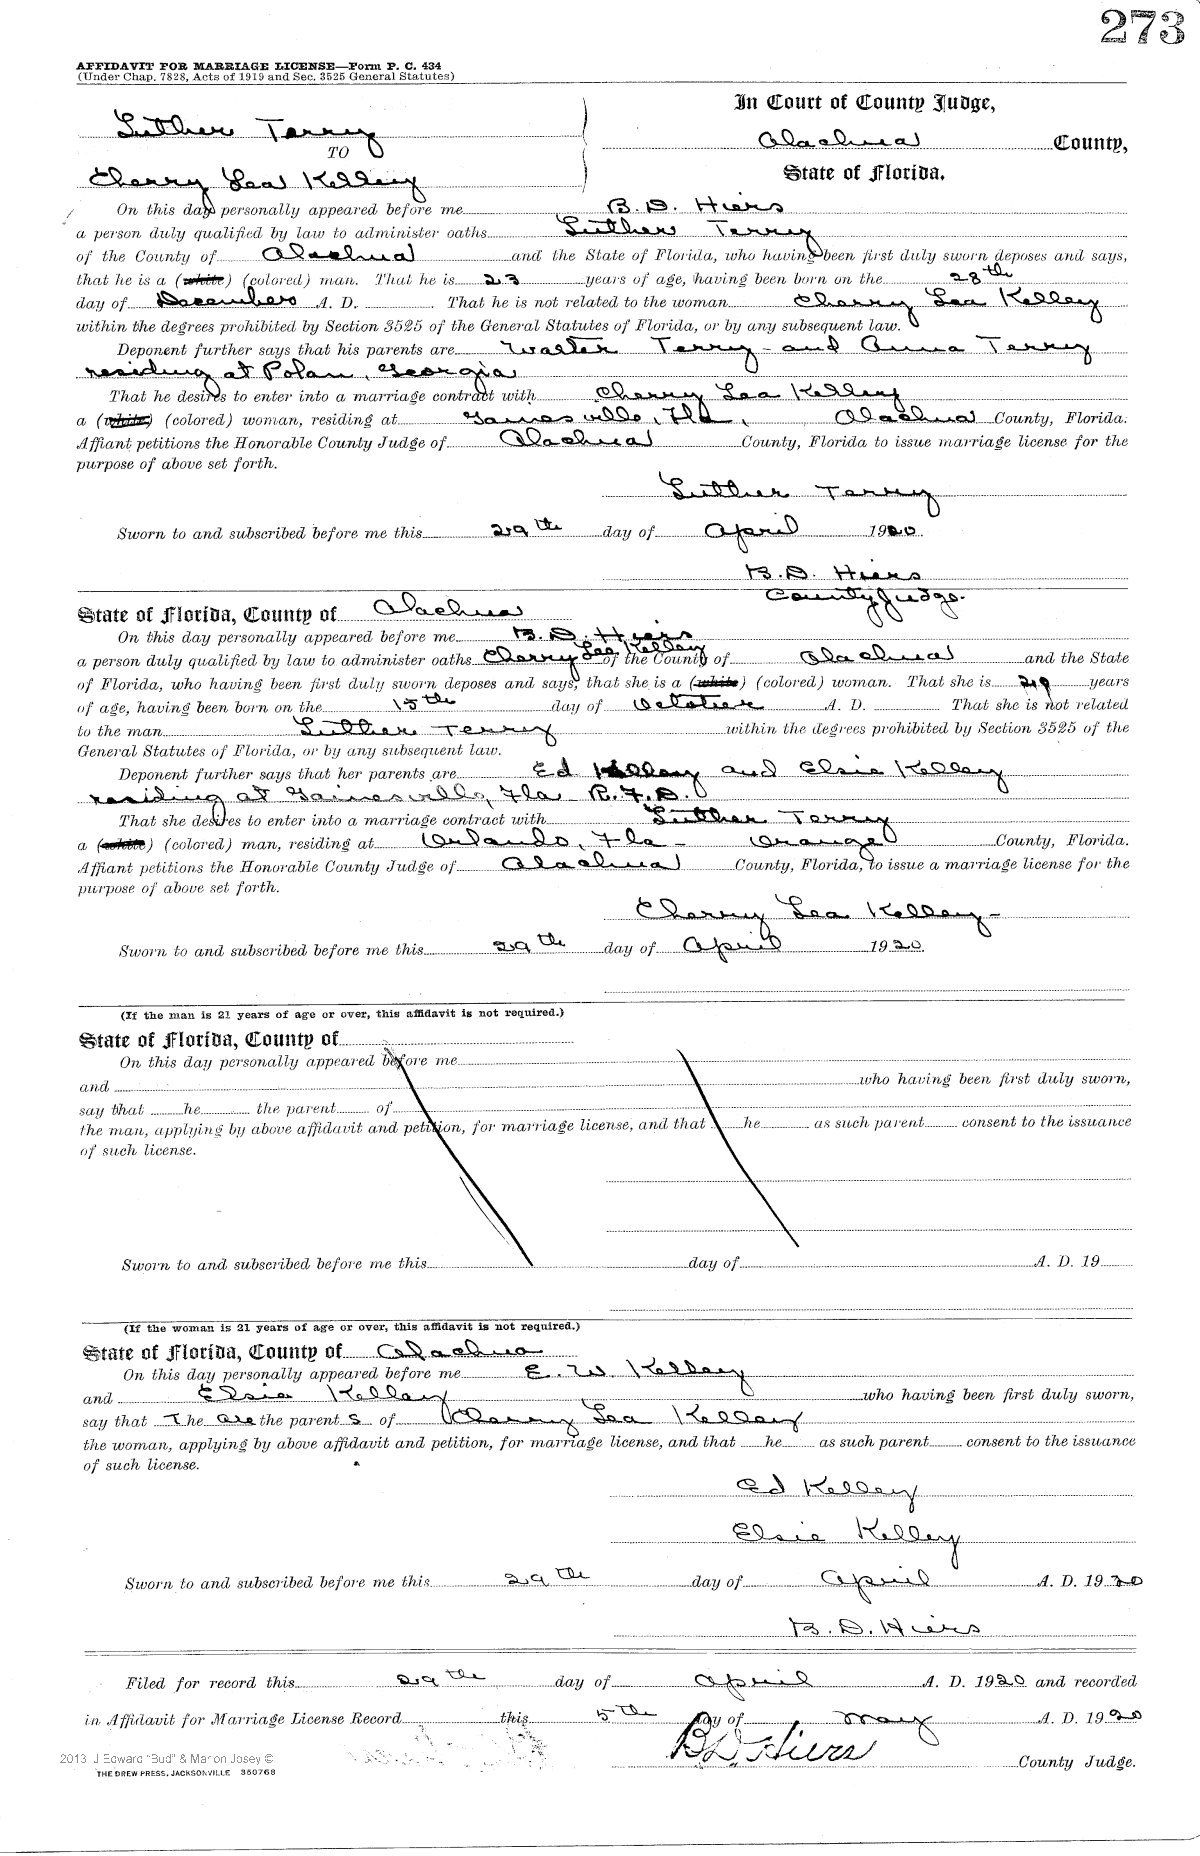 273
AFFIDAVIT FOR MARRIAGE LICENSE—Form P. C. 434
(Under Chap. 7828, Acts of 1919 and Sec. 3525 General Statutes)
In Court of County Judge,
Luther Terry
Alachua County,
TO
State of Florida.
Cherry Lea Kelley
On this day personally appeared before me B. D. Hiers
a person duly qualified by law to administer oaths Luther Terry
of the County of Alachua and the State of Florida, who having been first duly sworn deposes and says,
that he is a (white) (colored) man. That he is 23 years of age, having been born on the 28th
day of December A. D. That he is not related to the woman Cherry Lea Kelley
within the degrees prohibited by Section 3525 of the General Statutes of Florida, or by any subsequent law.
Deponent further says that his parents are Walter Terry - and Anna Terry
residing at Polan, Georgia
That he desires to enter into a marriage contract with Cherry Lea Kelley
a (white) (colored) woman, residing at Gainesville, Fla, Alachua County, Florida.
Affiant petitions the Honorable County Judge of Alachua County, Florida to issue marriage license for the
purpose of above set forth.
Luther Terry
Sworn to and subscribed before me this 29th day of April 1920
B. D. Hiers
County Judge.
State of Florida, County of Alachua
On this day personally appeared before me B. D. Hiers
a person duly qualified by law to administer oaths Cherry Lea Kelley of the County of Alachua and the State
of Florida, who having been first duly sworn deposes and says, that she is a (white) (colored) woman. That she is years
of age, having been born on the 15th day of October A. D. That she is not related
to the man Luther Terry within the degrees prohibited by Section 3525 of the
General Statutes of Florida, or by any subsequent law.
Deponent further says that her parents are Ed Kelley and Elsie Kelley
residing at Gainesville, Fla R.F.D.
That she desires to enter into a marriage contract with Luther Terry
a (white) (colored) man, residing at Orlando, Fla - Orange County, Florida.
Affiant petitions the Honorable County Judge of Alachua County, Florida, to issue a marriage license for the
purpose of above set forth.
Cherry Lea Kelley-
Sworn to and subscribed before me this 29th day of April 1920
(If the man is 21 years of age or over, this affidavit is not required.)
State of Florida, County of
On this day personally appeared before me
and who having been first duly sworn,
say that he the parent of
the man, applying by above affidavit and petition, for marriage license, and that he as such parent consent to the issuance
of such license.
Sworn to and subscribed before me this day of A. D. 19
(If the woman is 21 years of age or over, this affidavit is not required.)
State of Florida, County of Alachua
On this day personally appeared before me E. W. Kelley
and Elsie Kelley who having been first duly sworn,
say that The are the parent s of Cherry Lea Kelley
the woman, applying by above affidavit and petition, for marriage license, and that he as such parent consent to the issuance
of such license.
Ed Kelley
Elsie Kelley
Sworn to and subscribed before me this 29th day of April A. D. 1920
B. D. Hiers
Filed for record this 29th day of April A. D. 1920 and recorded
in Affidavit for Marriage License Record this 5th day of May A. D. 1920
B D Hiers
County Judge.
2013 J Edward "Bud" & Marion Josey ©
THE DREW PRESS, JACKSONVILLE 350768